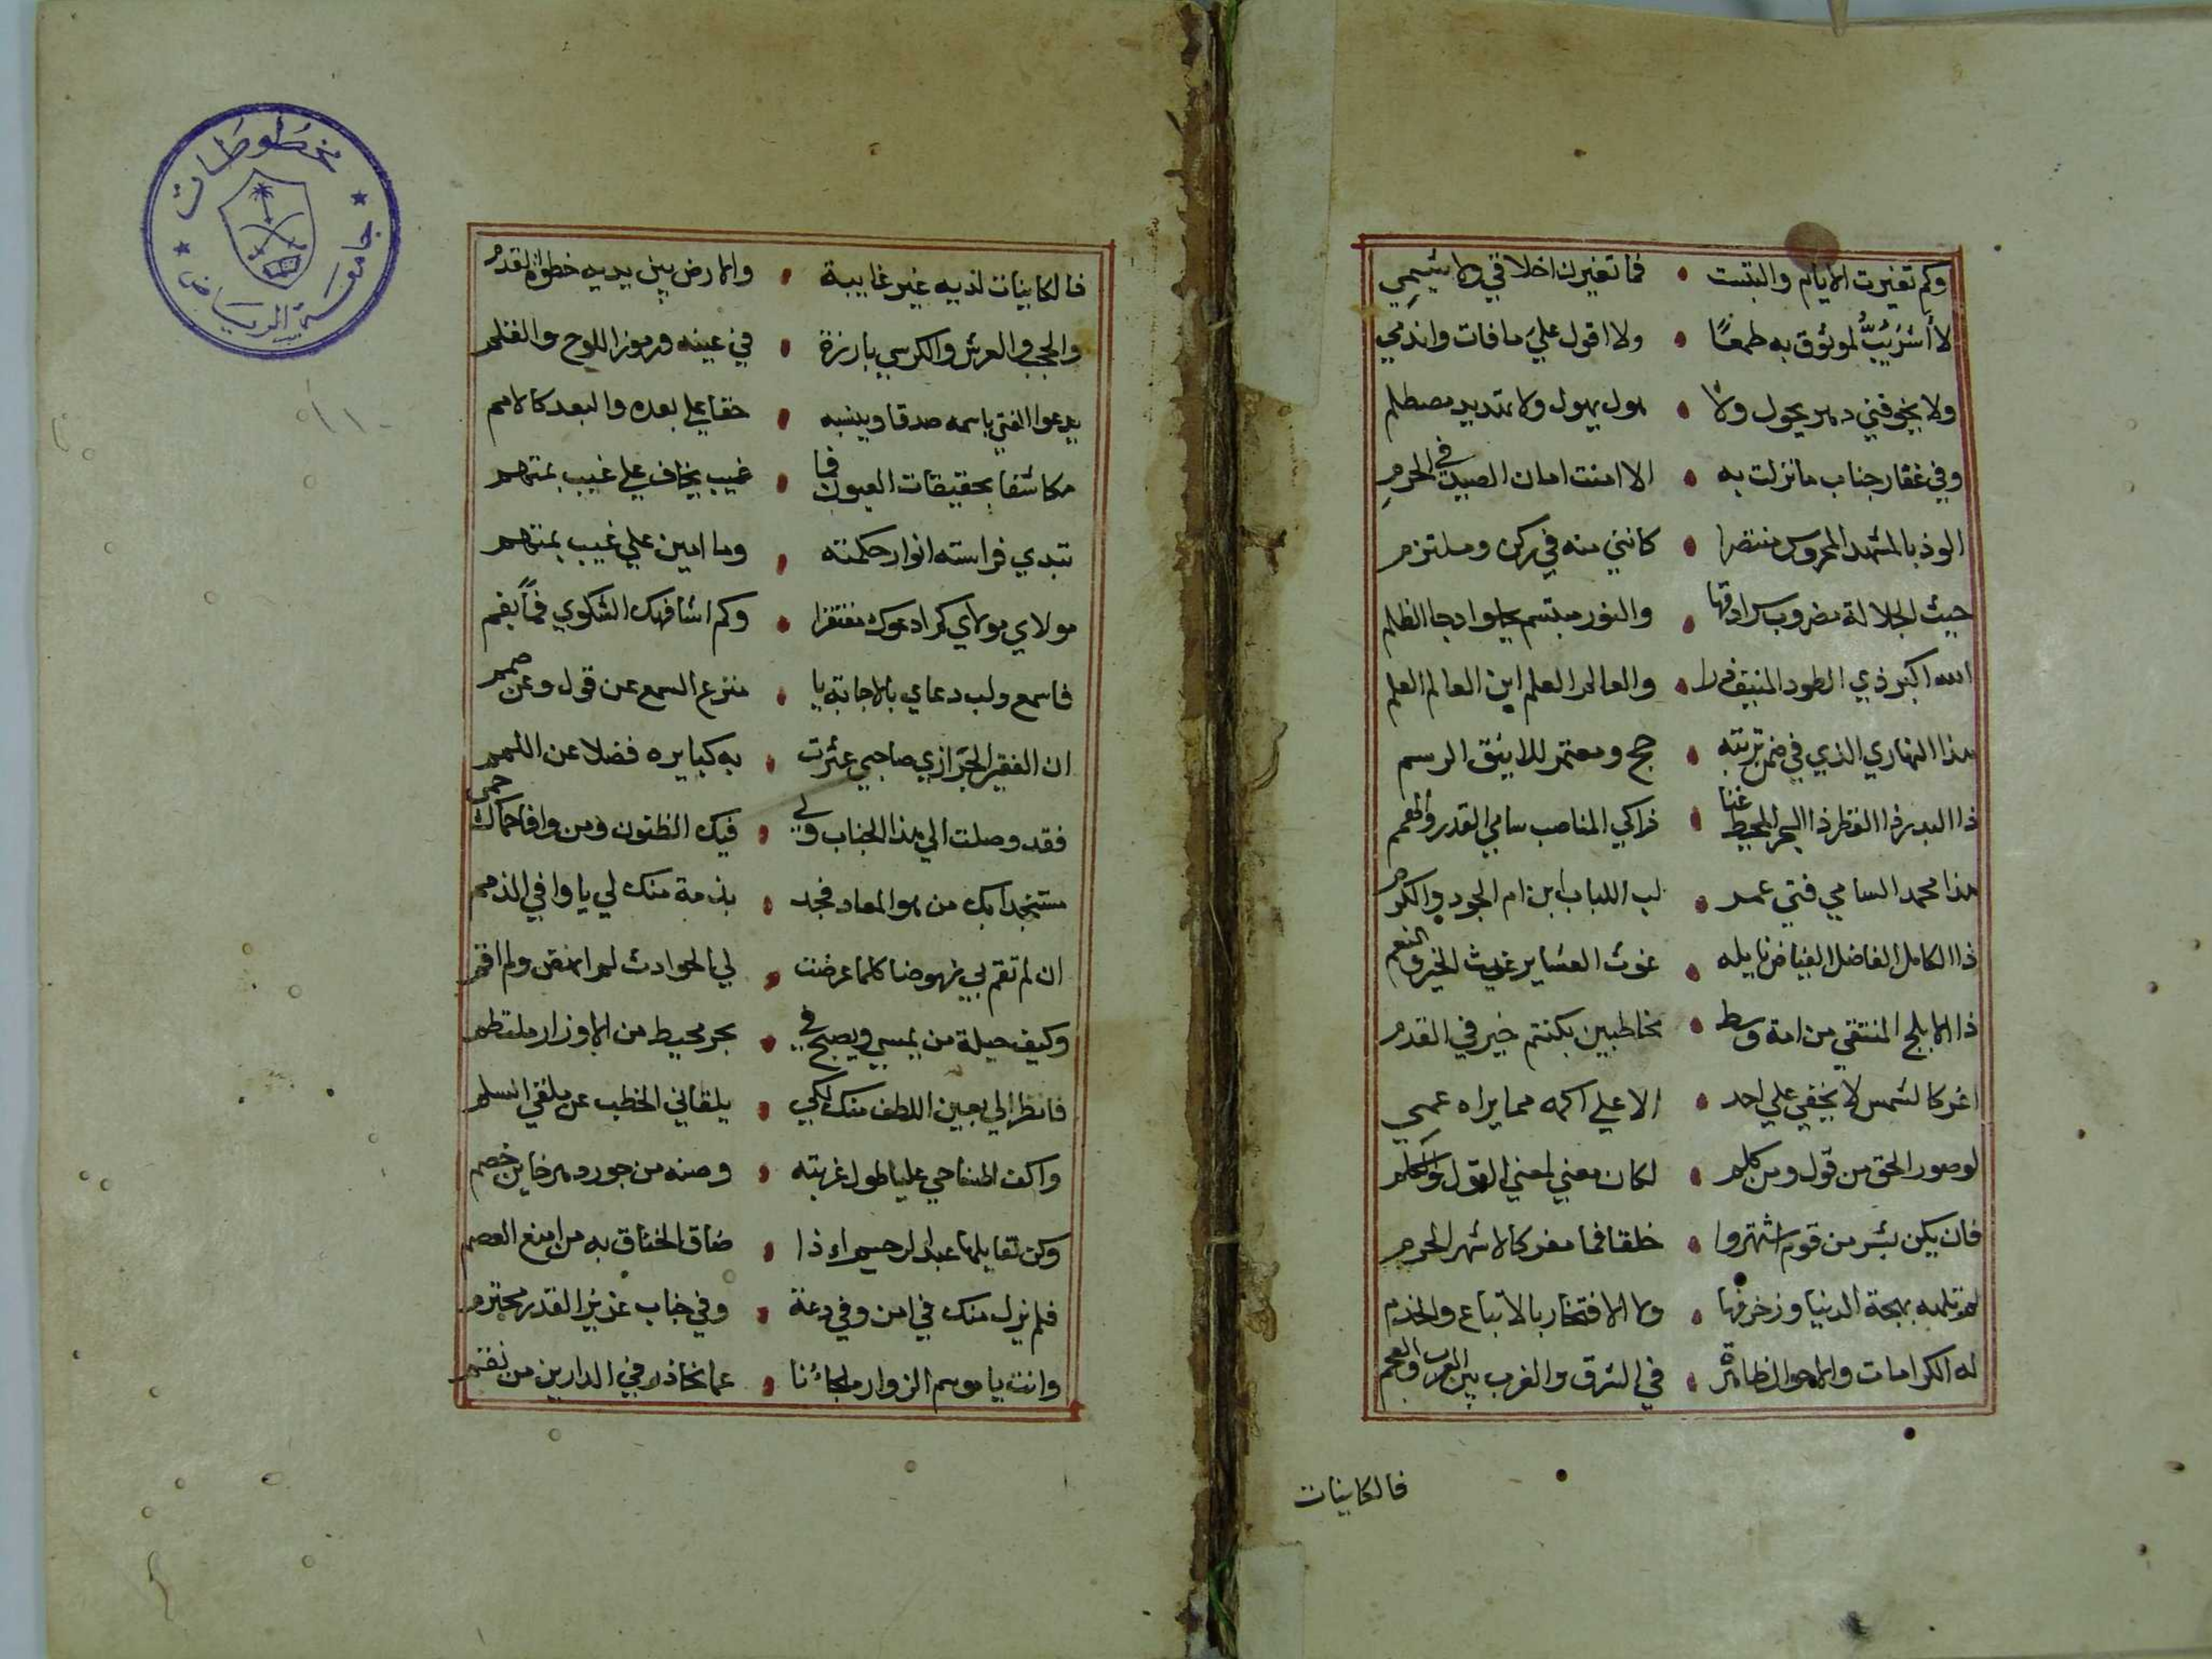 وكم تغيرت الايام والتبست • فما تغيرن اخلاقي ولا شيمي
لا أشرئبُّ لموثوق به طمعًا • ولا اقول علي ما فات واندمي
ولا يخوفني دهر يحول ولا • هول يهول ولا تهديد مصطلم
وفي عقار جناب ما نزلت به • الا امنت امان الصيد في الحرم
الوذ بالمشهد المحروس منتصرا • كانني منه في ركن وملتزم
حيث الجلالة مضروب سرادقها • والنور مبتسم يجلوا دجا الظلم
الله اكبر ذي الطود المنيف • والعالم العلم ابن العالم العلم
هذا النهاري الذي في ضمن تربته • حج ومعتمر للاينق الرسم
ذا البدر ذا القطر ذا البحر المحيط غنا • زاكي المناصب سامي القدر والهمم
هذا محمد السامي فتي عمر • لب اللباب ابن ام الجود والكرم
ذا الكامل الفاضل الفياض نايله • غوث العشاير غيث الخير والنعم
ذا الابلج المنتقي من امة وسط • مخاطبين بكنتم خير في القدم
اغر كالشمس لا يخفي علي احد • الا علي اكمه مما يراه عمي
لو صور الحق من قول ومن كلم • لكان معني لمعني القول والكلم
فان يكن بشر من قوم اشتهروا • خلقا فما مفر كالاشهر الحرم
لم تلهه بهجة الدنيا وزخرفها • ولا الافتخار بالاتباع والخدم
له الكرامات والاحوال ظاهرة • في الشرق والغرب بين العرب والعجم
فالكاينات
فالكاينات لديه غير غايبة • والارض بين يديه خطوة القدم
والحجب والعرش والكرسي بارزة • في عينه ورموز اللوح والقلم
يدعوا الفتي باسمه صدقا وينسبه • حقا علي بعده والبعد كالامم
مكاشفا بحقيقات العيوب فما • غيب يخاف علي غيب بمتهم
تبدي فراسته انوار حكمته • وما امين علي غيب بمتهم
مولاي مولاي كم ادعوك مفتقرا • وكم اشافهك الشكوي فما بفم
فاسمع ولب دعاي بالاجابة يا • منزع السمع عن قول وعن صمم
ان الفقير الحرازي صاحبي عثرت • به كبايره فضلا عن اللمم
فقد وصلت الي هذا الجناب ولي • فيك الظنون ومن وافا حماك حمي
مستنجدا بك من هول المعاد فجد • بذمة منك لي يا وافي الذمم
ان لم تقم بي نهوضا كلما عرضت • لي الحوادث لم انهض ولم اقم
وكيف حيلة من يمسي ويصبح في • بحر محيط من الاوزار ملتطم
فانظر الي بعين اللطف منك لكي • يلقاني الخطب عن ملقي السلم
واكف المناحي عليا طول غربته • وصنه من جور دهر خاين خصم
وكن لقايلها عبد الرحيم اذا • ضاق الخناق به من امنع العصم
فلم نزل منك في امن وفي دعة • وفي جناب عزيز القدر محترم
وانت يا موسم الزوار ملجاءنا • عما نحاذر في الدارين من نقم
مخطوطات
جامعة الرياض